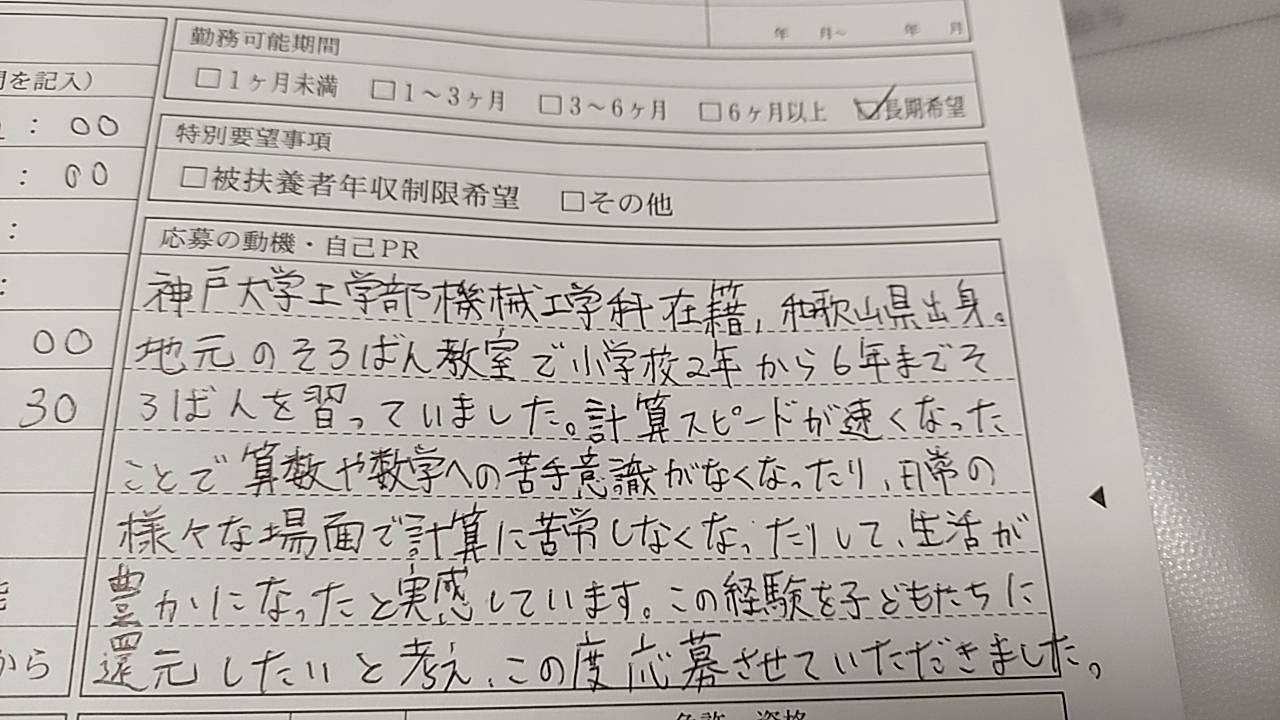 年 月~ 年 月
勤務可能期間
□1ヶ月未満 □1~3ヶ月 □3~6ヶ月 □6ヶ月以上 ☑長期希望
特別要望事項
□被扶養者年収制限希望 □その他
を記入)
: 00
: 00
:
:
00
30
から
応募の動機・自己PR
神戸大学工学部機械工学科在籍, 和歌山県出身。
地元のそろばん教室で小学校2年から6年までそ
ろばんを習っていました。計算スピードが速くなった
ことで算数や数学への苦手意識がなくなったり、日常の
様々な場面で計算に苦労しなくなったりして、生活が
豊かになったと実感しています。この経験を子どもたちに
還元したいと考え、この度応募させていただきました。
免許・資格